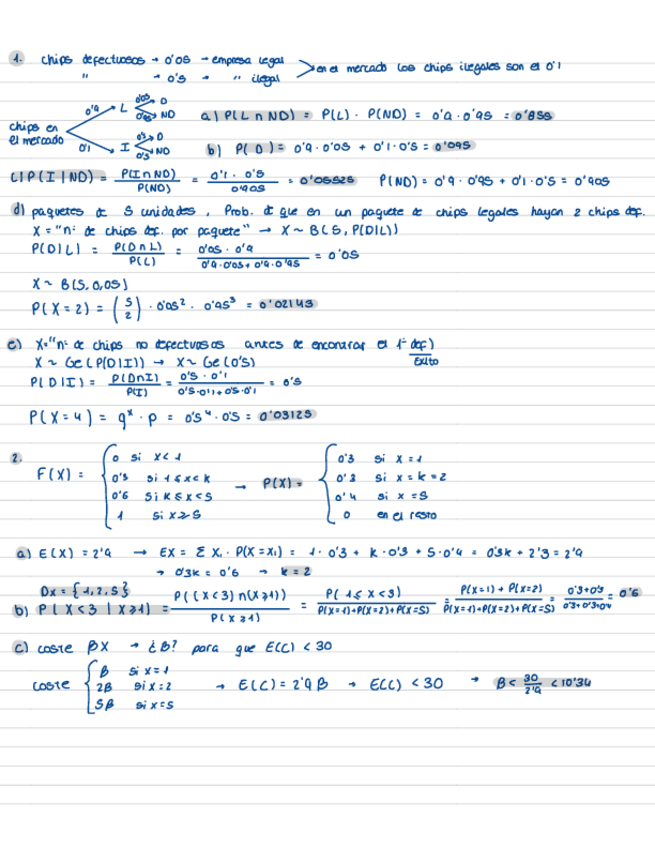 1. chips defectuosos → 0'05 → empresa legal > en el mercado los chips ilegales son el 0'1
" → 0'5 → " ilegal
chips en el mercado 0'9 L 0'05 D 0'95 ND
0'1 I 0'5 D 0'5 ND
a) P(L ∩ ND) = P(L) · P(ND) = 0'9 · 0'95 = 0'855
b) P(D) = 0'9 · 0'05 + 0'1 · 0'5 = 0'095
c) P(I | ND) = P(I ∩ ND) / P(ND) = 0'1 · 0'5 / 0'905 = 0'05525 P(ND) = 0'9 · 0'95 + 0'1 · 0'5 = 0'905
d) paquetes de 5 unidades, Prob. de que en un paquete de chips legales hayan 2 chips def.
X = "nº de chips def. por paquete" → X ~ B(5, P(D|L))
P(D|L) = P(D ∩ L) / P(L) = 0'05 · 0'9 / 0'9 · 0'05 + 0'9 · 0'95 = 0'05
X ~ B(5, 0,05)
P(X = 2) = (5 2) · 0'05² · 0'95³ = 0'02143
e) X = "nº de chips no defectuosos antes de encontrar el 1º def)
Éxito
X ~ Ge(P(D|I)) → X ~ Ge(0'5)
P(D|I) = P(D∩I) / P(I) = 0'5 · 0'1 / 0'5·0'1 + 0'5·0'1 = 0'5
P(X = 4) = qˣ · p = 0'5⁴ · 0'5 = 0'03125
2.
F(X) = { 0 si x < 1
0'3 si 1 ≤ x < k
0'6 si k ≤ x < 5
1 si x ≥ 5
→ P(X) = { 0'3 si x = 1
0'3 si x = k = 2
0'4 si x = 5
0 en el resto
a) E(X) = 2'9 → EX = Σ Xi · P(X = xi) = 1 · 0'3 + k · 0'3 + 5 · 0'4 = 0'3k + 2'3 = 2'9
→ 0'3k = 0'6 → k = 2
Dx = {1, 2, 5}
b) P(X < 3 | X ≥ 1) = P((X < 3) ∩ (X ≥ 1)) / P(X ≥ 1) = P(1 ≤ X < 3) / P(X=1)+P(X=2)+P(X=5) = P(X=1) + P(X=2) / P(X=1)+P(X=2)+P(X=5) = 0'3+0'3 / 0'3+0'3+0'4 = 0'6
c) coste βX → ¿β? para que E(C) < 30
coste { β si x = 1
2β si x = 2
5β si x = 5
→ E(C) = 2'9 β → E(C) < 30 → β < 30 / 2'9 < 10'34